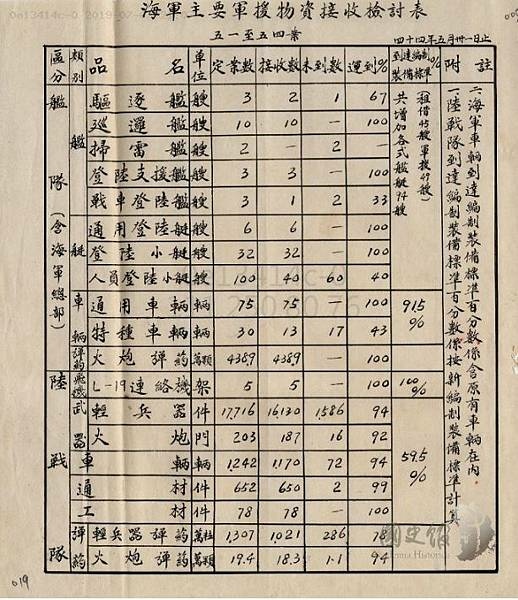 海軍主要軍援物資接收檢討表
五一至五四案
四十四年五月卅一日止
區分 類別 品名 單位 定案數 接收數 未到數 運到% 到達編制裝備標準% 附註
艦隊（含海軍總部）
艦艇 驅逐艦 艘 3 2 1 67 共增加各式艦艇94艘（租借45艘軍援49艘）
巡邏艦 艘 10 10 — 100
掃雷艦 艘 2 — 2 —
登陸支援艦 艘 3 3 — 100
戰車登陸艦 艘 3 1 2 33
通用登陸艇 艘 6 6 — 100
登陸小艇 艘 32 32 — 100
人員登陸小艇 艘 100 40 60 40
車輛 通用車輛 輛 75 75 — 100 91.5%
特種車輛 輛 30 13 17 43
彈藥 火炮彈藥 萬顆 438.9 438.9 — 100
陸戰隊
飛機 L-19連絡機 架 5 5 — 100 100%
武器 輕兵器 件 17,716 16,130 1,586 94 59.5%
火炮 門 203 187 16 92
車輛 輛 1,242 1,170 72 94
通材 件 652 650 2 99
工材 件 78 78 — 100
彈藥 輕兵器彈藥 萬粒 1,307 1,021 286 78
火炮彈藥 萬顆 19.4 18.3 1.1 94
一、陸戰隊到達編制裝備標準百分數係按新編制裝備標準計算
二、海軍車輛到達編制裝備標準百分數係含原有車輛在內
國史館
Academia Historica
019